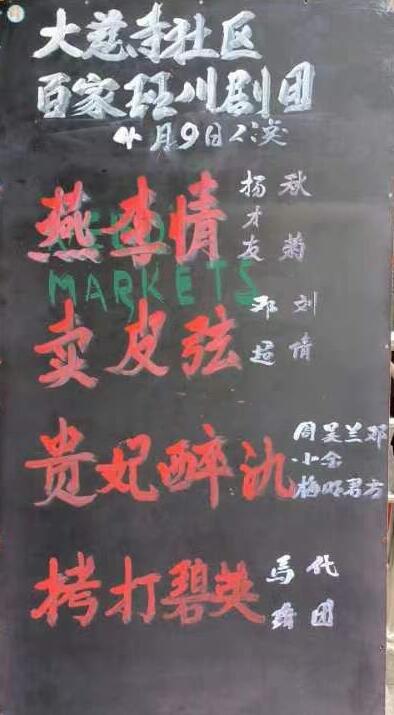 大慈寺社区
百家班川剧团
4月9日公演
燕李情
杨才友
秋菊
MARKETS
卖皮弦
邓超
刘倩
贵妃醉氿
周小梅
吴金明
兰君
邓方
拷打碧英
马
代团